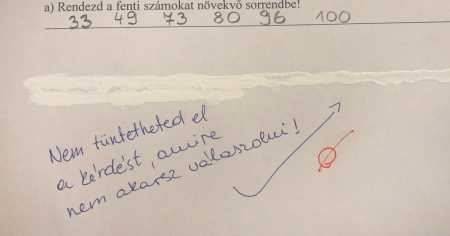 a) Rendezd a fenti számokat növekvő sorrendbe!
33 49 73 80 96 100
Nem tüntetheted el
a kérdést, amire
nem akarsz válaszolni!